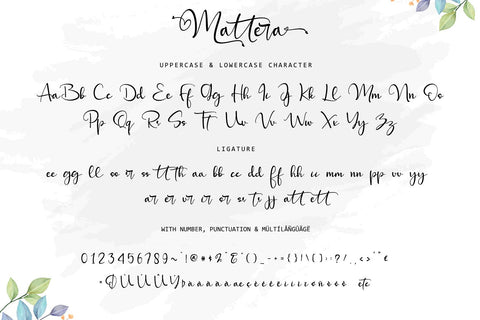 Mattera
UPPERCASE & LOWERCASE CHARACTER
Aa Bb Cc Dd Ee Ff Gg Hh Ii Jj Kk Ll Mm Nn Oo
Pp Qq Rr Ss Tt Uu Vv Ww Xx Yy Zz
LIGATURE
ee gg ll oo rr ss tt th aa bb cc dd ff hh ii mm nn pp vv yy
ar er ir or
att ett
WITH NUMBER, PUNCTUATION & MÜLTÍLÀÑGÜÂGË
0123456789
etc